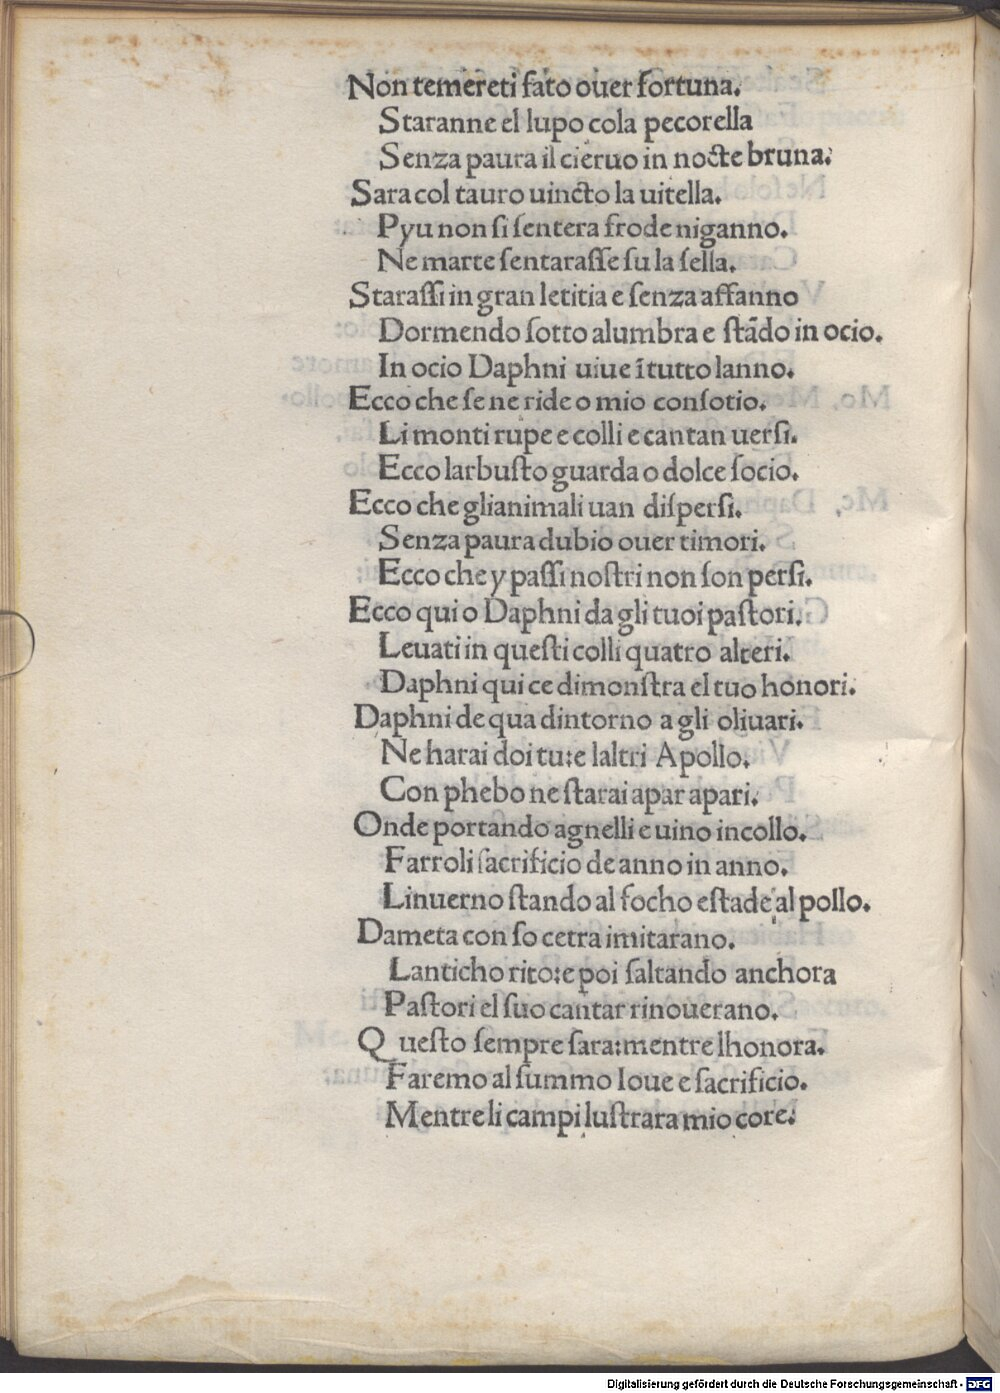 Non temereti fato ouer fortuna.
Staranne el lupo cola pecorella
Senza paura il cieruo in nocte bruna.
Sara col tauro uincto la uitella.
Pyu non si sentera frode niganno.
Ne marte sentarasse su la sella.
Starassi in gran letitia e senza affanno
Dormendo sotto alumbra e stādo in ocio.
In ocio Daphni uiue ītutto lanno.
Ecco che se ne ride o mio consotio.
Li monti rupe e colli e cantan uersi.
Ecco larbusto guarda o dolce socio.
Ecco che glianimali uan dispersi.
Senza paura dubio ouer timori.
Ecco che y passi nostri non son persi.
Ecco qui o Daphni da gli tuoi pastori.
Leuati in questi colli quatro alteri.
Daphni qui ce dimonstra el tuo honori.
Daphni de qua dintorno a gli oliuari.
Ne harai doi tu:e laltri Apollo.
Con phebo ne starai apar apari.
Onde portando agnelli e uino incollo.
Farroli sacrificio de anno in anno.
Linuerno stando al focho estade al pollo.
Dameta con so cetra imitarano.
Lanticho rito:e poi saltando anchora
Pastori el suo cantar rinouerano.
Questo sempre sara:mentre lhonora.
Faremo al summo Ioue e sacrificio.
Mentre li campi lustrara mio core.
Digitalisierung gefördert durch die Deutsche Forschungsgemeinschaft - DFG